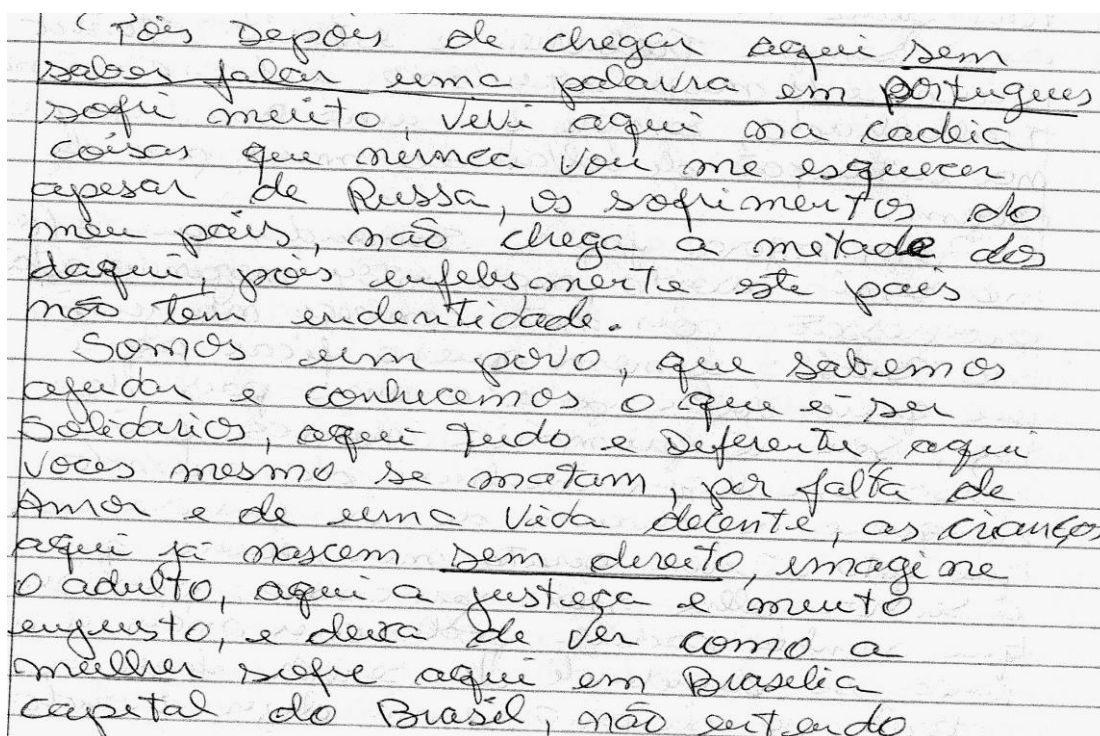 Pois Depois de chegar aqui sem
saber falar uma palavra em portugues
sofri muito, vivi aqui na cadeia
coisas que nunca vou me esquecer
apesar de Russa, os sofrimentos do
meu pais, não chega a metade dos
daqui, pois enfelismente este pais
não tem endentidade.
Somos um povo, que sabemos
ajudar e conhecemos o que é ser
Solidarios, aqui tudo e Diferente, aqui
voces mesmo se matam, por falta de
Amor e de uma vida decente, as crianças
aqui já nascem sem direito, imagine
o adulto, aqui a justiça e muito
enjusto, e deixa de ver como a
mulher sofre aqui em Brasilia
capital do Brasil, não entendo